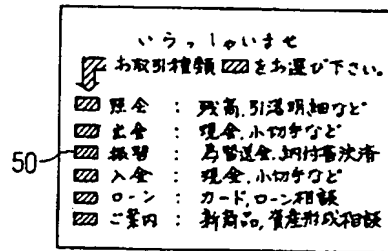 いらっしゃいませ
お取引種類 をお選び下さい。
照会 : 残高,引落明細など
出金 : 現金,小切手など
50 振替 : 為替送金,納付書決済
入金 : 現金,小切手など
ローン : カード,ローン相談
ご案内 : 新商品,資産形成相談